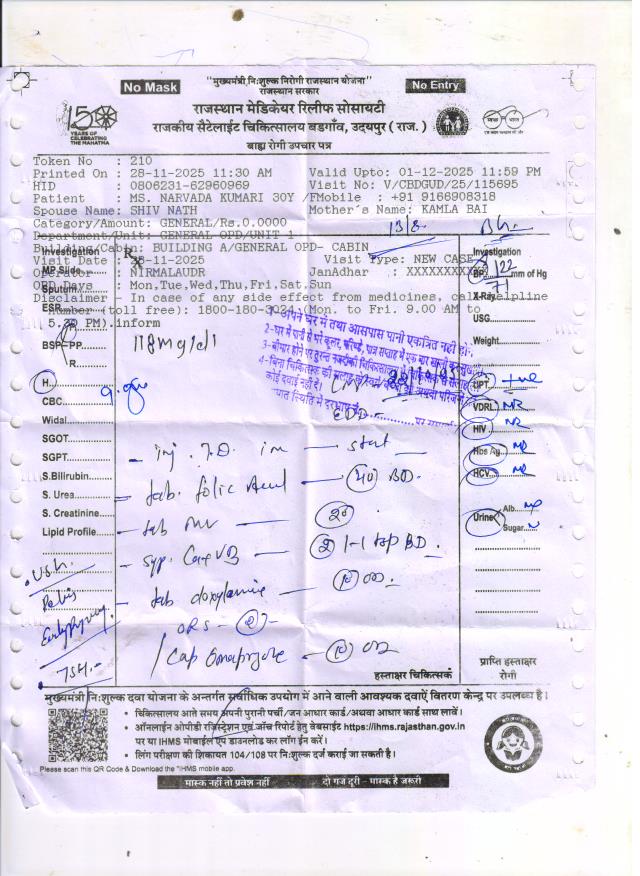 No Mask
"मुख्यमंत्री नि:शुल्क निरोगी राजस्थान योजना"
राजस्थान सरकार
No Entry
राजस्थान मेडिकेयर रिलीफ सोसायटी
राजकीय सैटेलाईट चिकित्सालय बडगाँव, उदयपुर ( राज. )
बाह्य रोगी उपचार पत्र
150
YEARS OF
CELEBRATING
THE MAHATMA
Token No : 210
Printed On : 28-11-2025 11:30 AM Valid Upto: 01-12-2025 11:59 PM
HID : 0806231-62960969 Visit No: V/CBDGUD/25/115695
Patient : MS. NARVADA KUMARI 30Y /F Mobile : +91 9166908318
Spouse Name: SHIV NATH Mother's Name: KAMLA BAI
Category/Amount: GENERAL/Rs.0.0000
Department/Unit: GENERAL OPD/UNIT 1
Building/Cabin: BUILDING A/GENERAL OPD- CABIN
Visit Date : 28-11-2025 Visit Type: NEW CASE
Operator : NIRMALAUDR JanAdhar : XXXXXXXX
OPD Days : Mon,Tue,Wed,Thu,Fri,Sat,Sun
Disclaimer - In case of any side effect from medicines, call helpline
number (toll free): 1800-180-3024 (Mon. to Fri. 9.00 AM to
5.30 PM).inform
Investigation
MP Slide
Sputum
ESR
BSF PP
R
H
CBC
Widal
SGOT
SGPT
S.Bilirubin
S. Urea
S. Creatinine
Lipid Profile
Rx
118 mg/dl
EDD
- inj. T.D. im - stat
- tab. folic acid - 40 BD.
- tab MV - 20
- syp. - 2 1-1 tsp BD.
- tab doxylamine - 10 OD.
ORS - 2
Cap Omeprazole - 10 OD
Early pregnancy
TSH.
Investigation
BP 122 mm of Hg
71
X-Ray
USG
Weight
UPT +ve
VDRL NR
HIV NR
Hbs Ag
HCV
Urine Alb.
Sugar N
हस्ताक्षर चिकित्सक
प्राप्ति हस्ताक्षर
रोगी
मुख्यमंत्री नि:शुल्क दवा योजना के अन्तर्गत सर्वाधिक उपयोग में आने वाली आवश्यक दवाऐं वितरण केन्द्र पर उपलब्ध है।
• चिकित्सालय आते समय अपनी पुरानी पर्ची/जन आधार कार्ड/अथवा आधार कार्ड साथ लावें।
• ऑनलाईन ओपीडी रजिस्ट्रेशन एवं जाँच रिपोर्ट हेतु वेबसाईट https://ihms.rajasthan.gov.in
पर या IHMS मोबाईल एप डाउनलोड कर लॉग ईन करें।
• लिंग परीक्षण की शिकायत 104/108 पर नि:शुल्क दर्ज कराई जा सकती है।
Please scan this QR Code & Download the "IHMS mobile app.
मास्क नहीं तो प्रवेश नहीं दो गज दूरी - मास्क है जरूरी